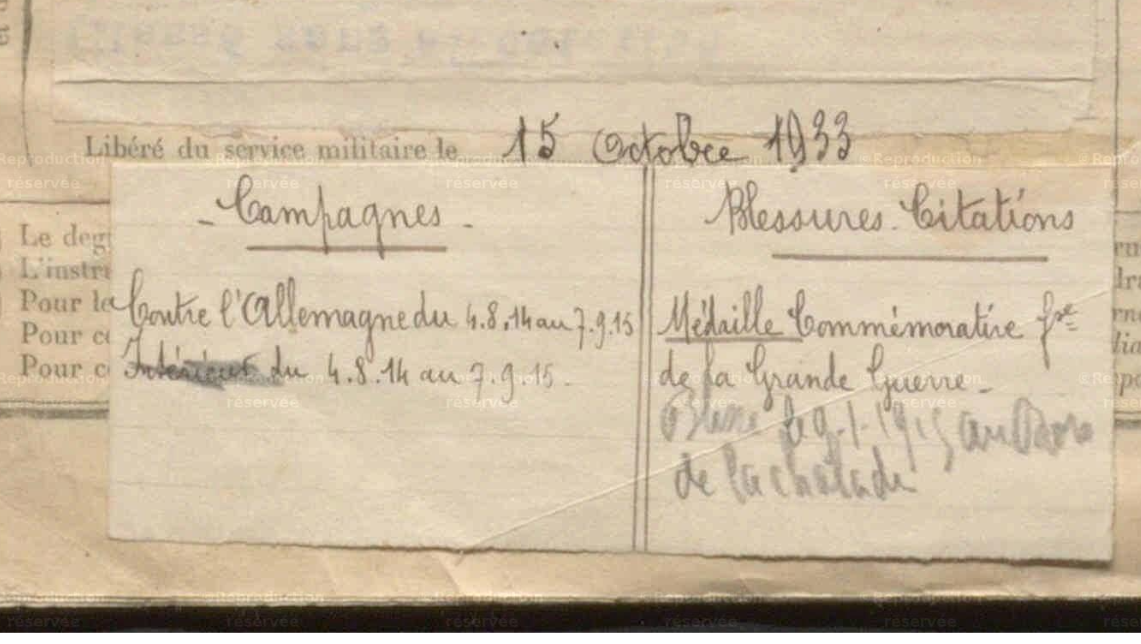 Libéré du service militaire le 15 Octobre 1933
- Campagnes -
Contre l'Allemagne du 4.8.14 au 7.9.15
Intérieur du 4.8.14 au 7.9.15.
Blessures. Citations
Médaille Commémorative fse
de la Grande Guerre -
Blessé le 9.1.1915 au Bois
de la chalade
Le deg
L'instr
Pour le
Pour c
Pour c
©Reproduction
réservée